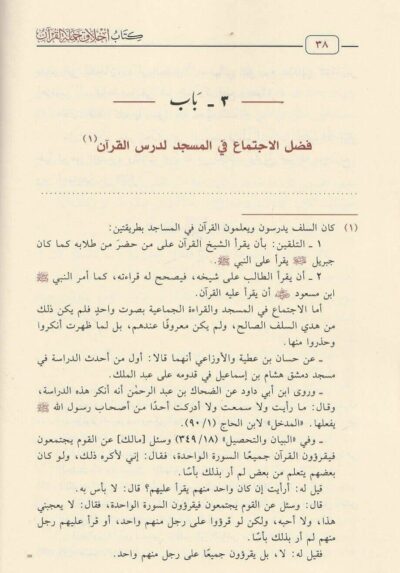 كتاب أخلاق حملة القرآن
٣٨
٣ ـ بَاب
فضل الاجتماع في المسجد لدرس القرآن(١)
(١) كان السلف يدرسون ويعلمون القرآن في المساجد بطريقتين:
١ ـ التلقين: بأن يقرأ الشيخ القرآن على من حضرَ من طلابه كما كان
جبريل ﷺ يقرأ على النبي ﷺ.
٢ ـ أن يقرأ الطالب على شيخه، فيصحح له قراءته، كما أمر النبي ﷺ
ابن مسعود رضي الله عنه أن يقرأ عليه القرآن.
أما الاجتماع في المسجد والقراءة الجماعية بصوت واحدٍ فلم يكن ذلك
من هدي السلف الصالح، ولم يكن معروفًا عندهم، بل لما ظهرت أنكروا
وحذروا منها.
ـ عن حسان بن عطية والأوزاعي أنهما قالا: أول من أحدث الدراسة في
مسجد دمشق هشام بن إسماعيل في قدومه على عبد الملك.
ـ وروى ابن أبي داود عن الضحاك بن عبد الرحمٰن أنه أنكر هذه الدراسة،
وقال: ما رأيت ولا سمعت ولا أدركت أحدًا من أصحاب رسول الله ﷺ
يفعلها. «المدخل» لابن الحاج (٩٠/١).
ـ وفي «البيان والتحصيل» (٣٤٩/١٨) وسئل [مالك] عن القوم يجتمعون
فيقرؤون القرآن جميعًا السورة الواحدة، فقال: إني لأكره ذلك، ولو كان
بعضهم يتعلم من بعض لم أر بذلك بأسًا.
قيل له: أرأيت إن كان واحد منهم يقرأ عليهم؟ قال: لا بأس به.
قال: وسئل عن القوم يجتمعون فيقرؤون السورة الواحدة، فقال: لا يعجبني
هذا، ولا أحبه، ولكن لو قرؤوا على رجل منهم واحد، أو قرأ عليهم رجل
منهم لم أر بذلك بأسًا.
فقيل له: لا، بل يقرؤون جميعًا على رجل منهم واحد.